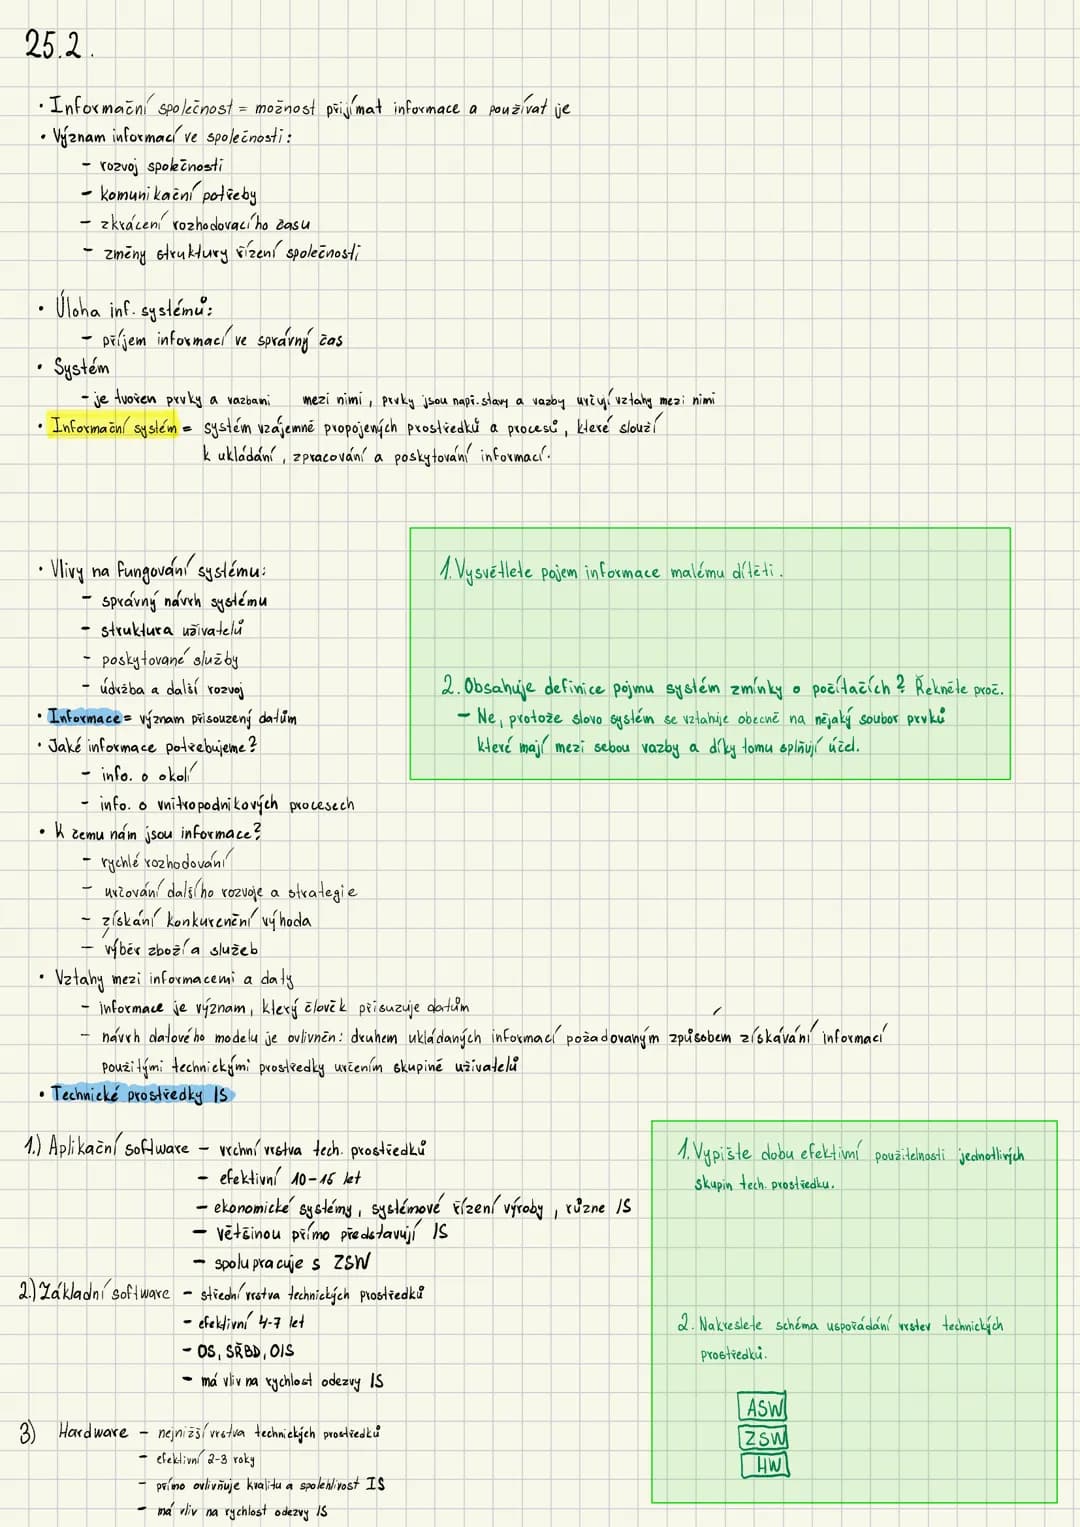 25.2.
• Informační společnost = možnost přijímat informace a používat je
• Význam informací ve společnosti:
- rozvoj společnosti
- komunikační potřeby
- zkrácení rozhodovacího času
- změny struktury řízení společnosti
• Úloha inf. systémů:
- příjem informací ve správný čas
• Systém
- je tvořen prvky a vazbami mezi nimi, prvky jsou např. stavy a vazby určují vztahy mezi nimi
• Informační systém = systém vzájemně propojených prostředků a procesů, které slouží
k ukládání, zpracování a poskytování informací.
• Vlivy na fungování systému:
- správný návrh systému
- struktura uživatelů
- poskytované služby
- údržba a další rozvoj
• Informace = význam přisouzený datům
• Jaké informace potřebujeme?
- info. o okolí
- info. o vnitropodnikových procesech
• K čemu nám jsou informace?
- rychlé rozhodování
- určování dalšího rozvoje a strategie
- získání konkurenční výhoda
- výběr zboží a služeb
1. Vysvětlete pojem informace malému dítěti.
2. Obsahuje definice pojmu systém zmínky o počítačích? Řekněte proč.
- Ne, protože slovo systém se vztahuje obecně na nějaký soubor prvků
které mají mezi sebou vazby a díky tomu splňují účel.
• Vztahy mezi informacemi a daty
- informace je význam, který člověk přisuzuje datům
- návrh datového modelu je ovlivněn: druhem ukládaných informací požadovaným způsobem získávání informací
použitými technickými prostředky určením skupině uživatelů
• Technické prostředky IS
1.) Aplikační software - vrchní vrstva tech. prostředků
- efektivní 10-15 let
- ekonomické systémy, systémové řízení výroby, různe IS
- většinou přímo představují IS
- spolupracuje s ZSW
2.) Základní software - střední vrstva technických prostředků
- efektivní 4-7 let
- OS, SŘBD, OIS
- má vliv na rychlost odezvy IS
3) Hardware - nejnižší vrstva technických prostředků
- efektivní 2-3 roky
- přímo ovlivňuje kvalitu a spolehlivost IS
- má vliv na rychlost odezvy IS
1. Vypište dobu efektivní použitelnosti jednotlivých
skupin tech. prostředku.
2. Nakreslete schéma uspořádání vrstev technických
prostředků.
ASW
ZSW
HW